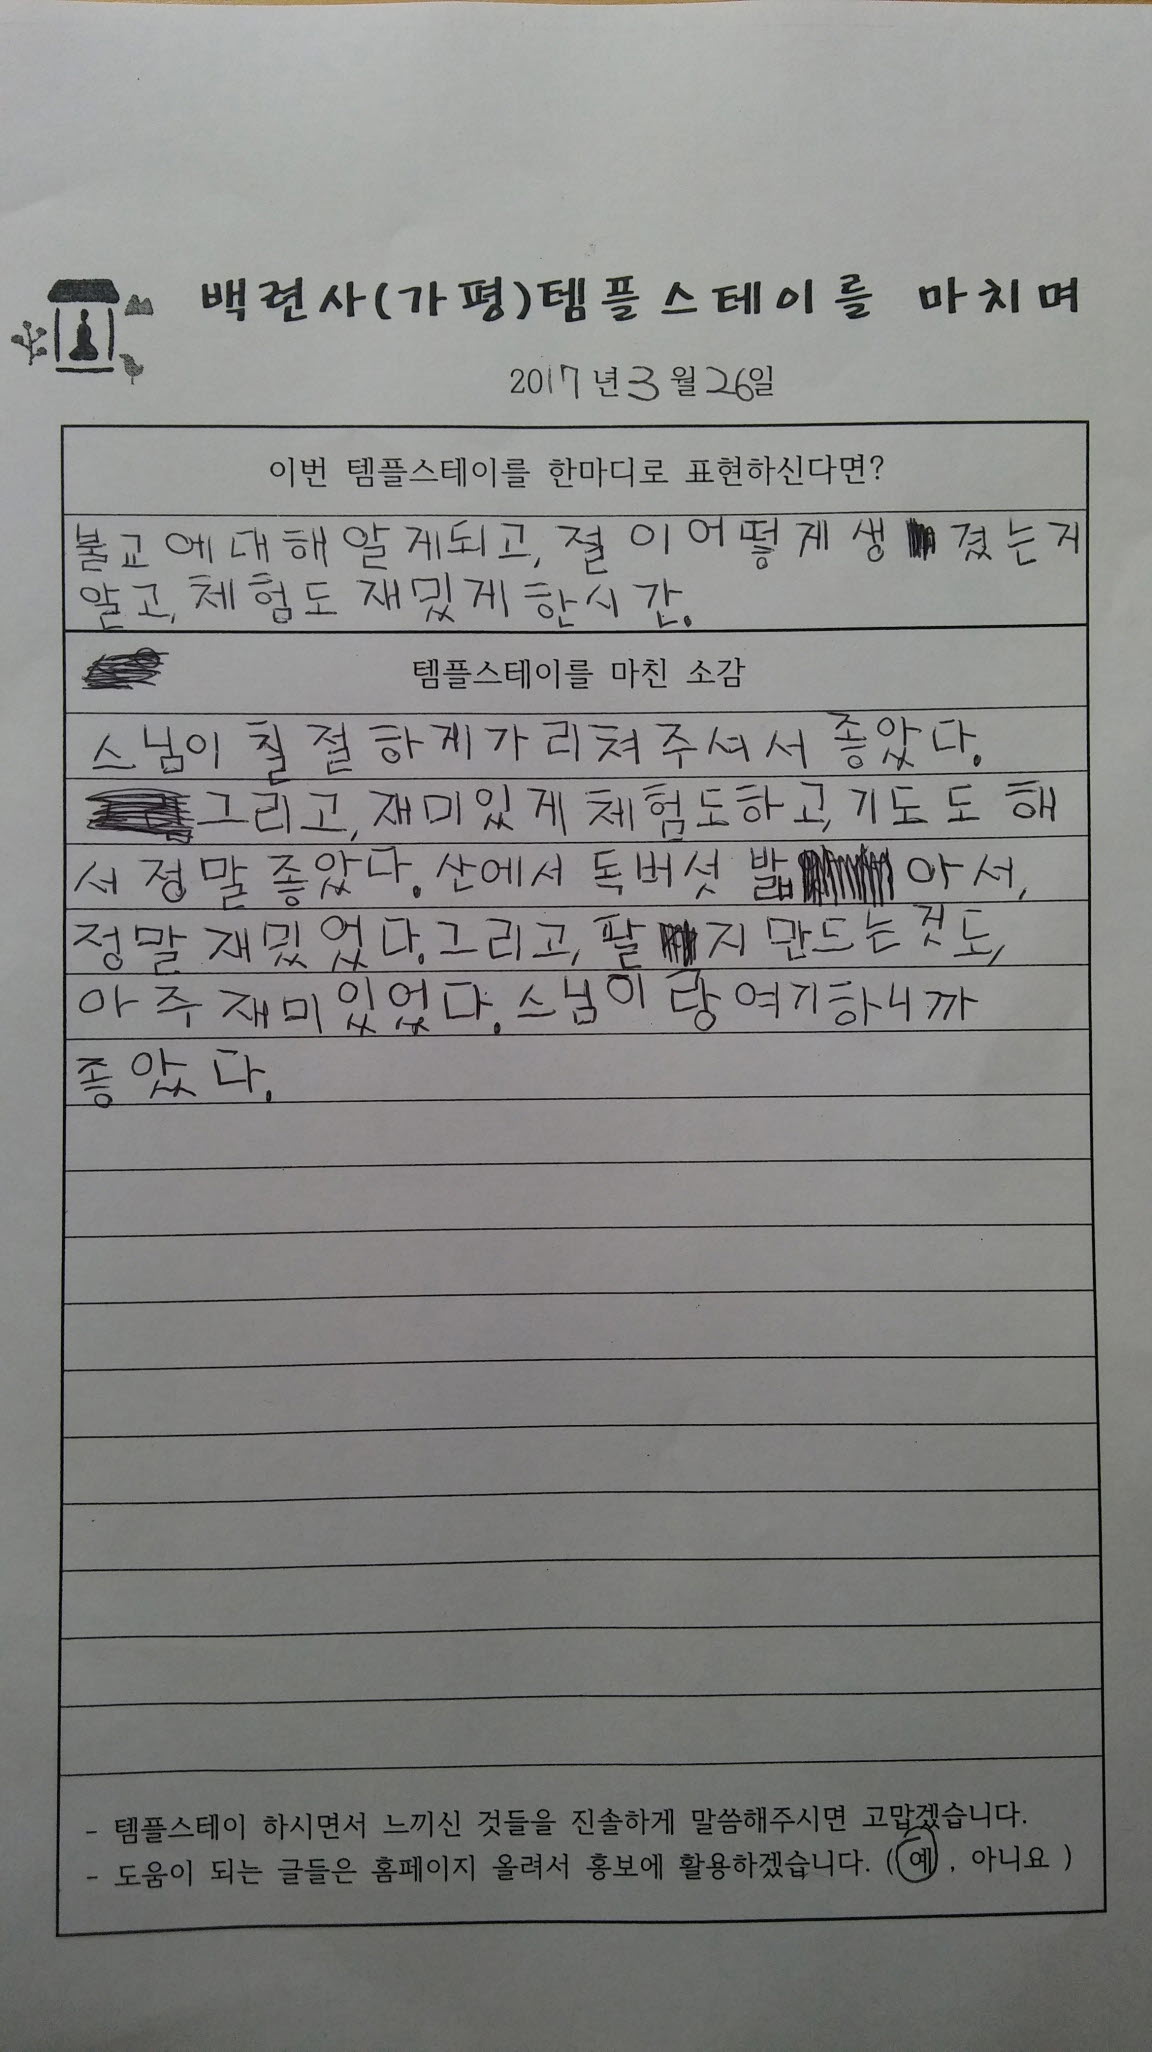 백련사(가평)템플스테이를 마치며
2017년 3월 26일
이번 템플스테이를 한마디로 표현하신다면?
불교에대해 알게되고, 절이어떻게생겼는지
알고, 체험도 재밌게 한시간.
템플스테이를 마친 소감
스님이 칠절하게가리쳐주셔서 좋았다.
그리고, 재미있게 체험도하고, 기도도 해
서 정말 좋았다. 산에서 독버섯 밟아서,
정말 재밌었다. 그리고, 팔지 만드는것도,
아주 재미있었다. 스님이랑 여기하니까
좋았다.
- 템플스테이 하시면서 느끼신 것들을 진솔하게 말씀해주시면 고맙겠습니다.
- 도움이 되는 글들은 홈페이지 올려서 홍보에 활용하겠습니다. (예, 아니요 )